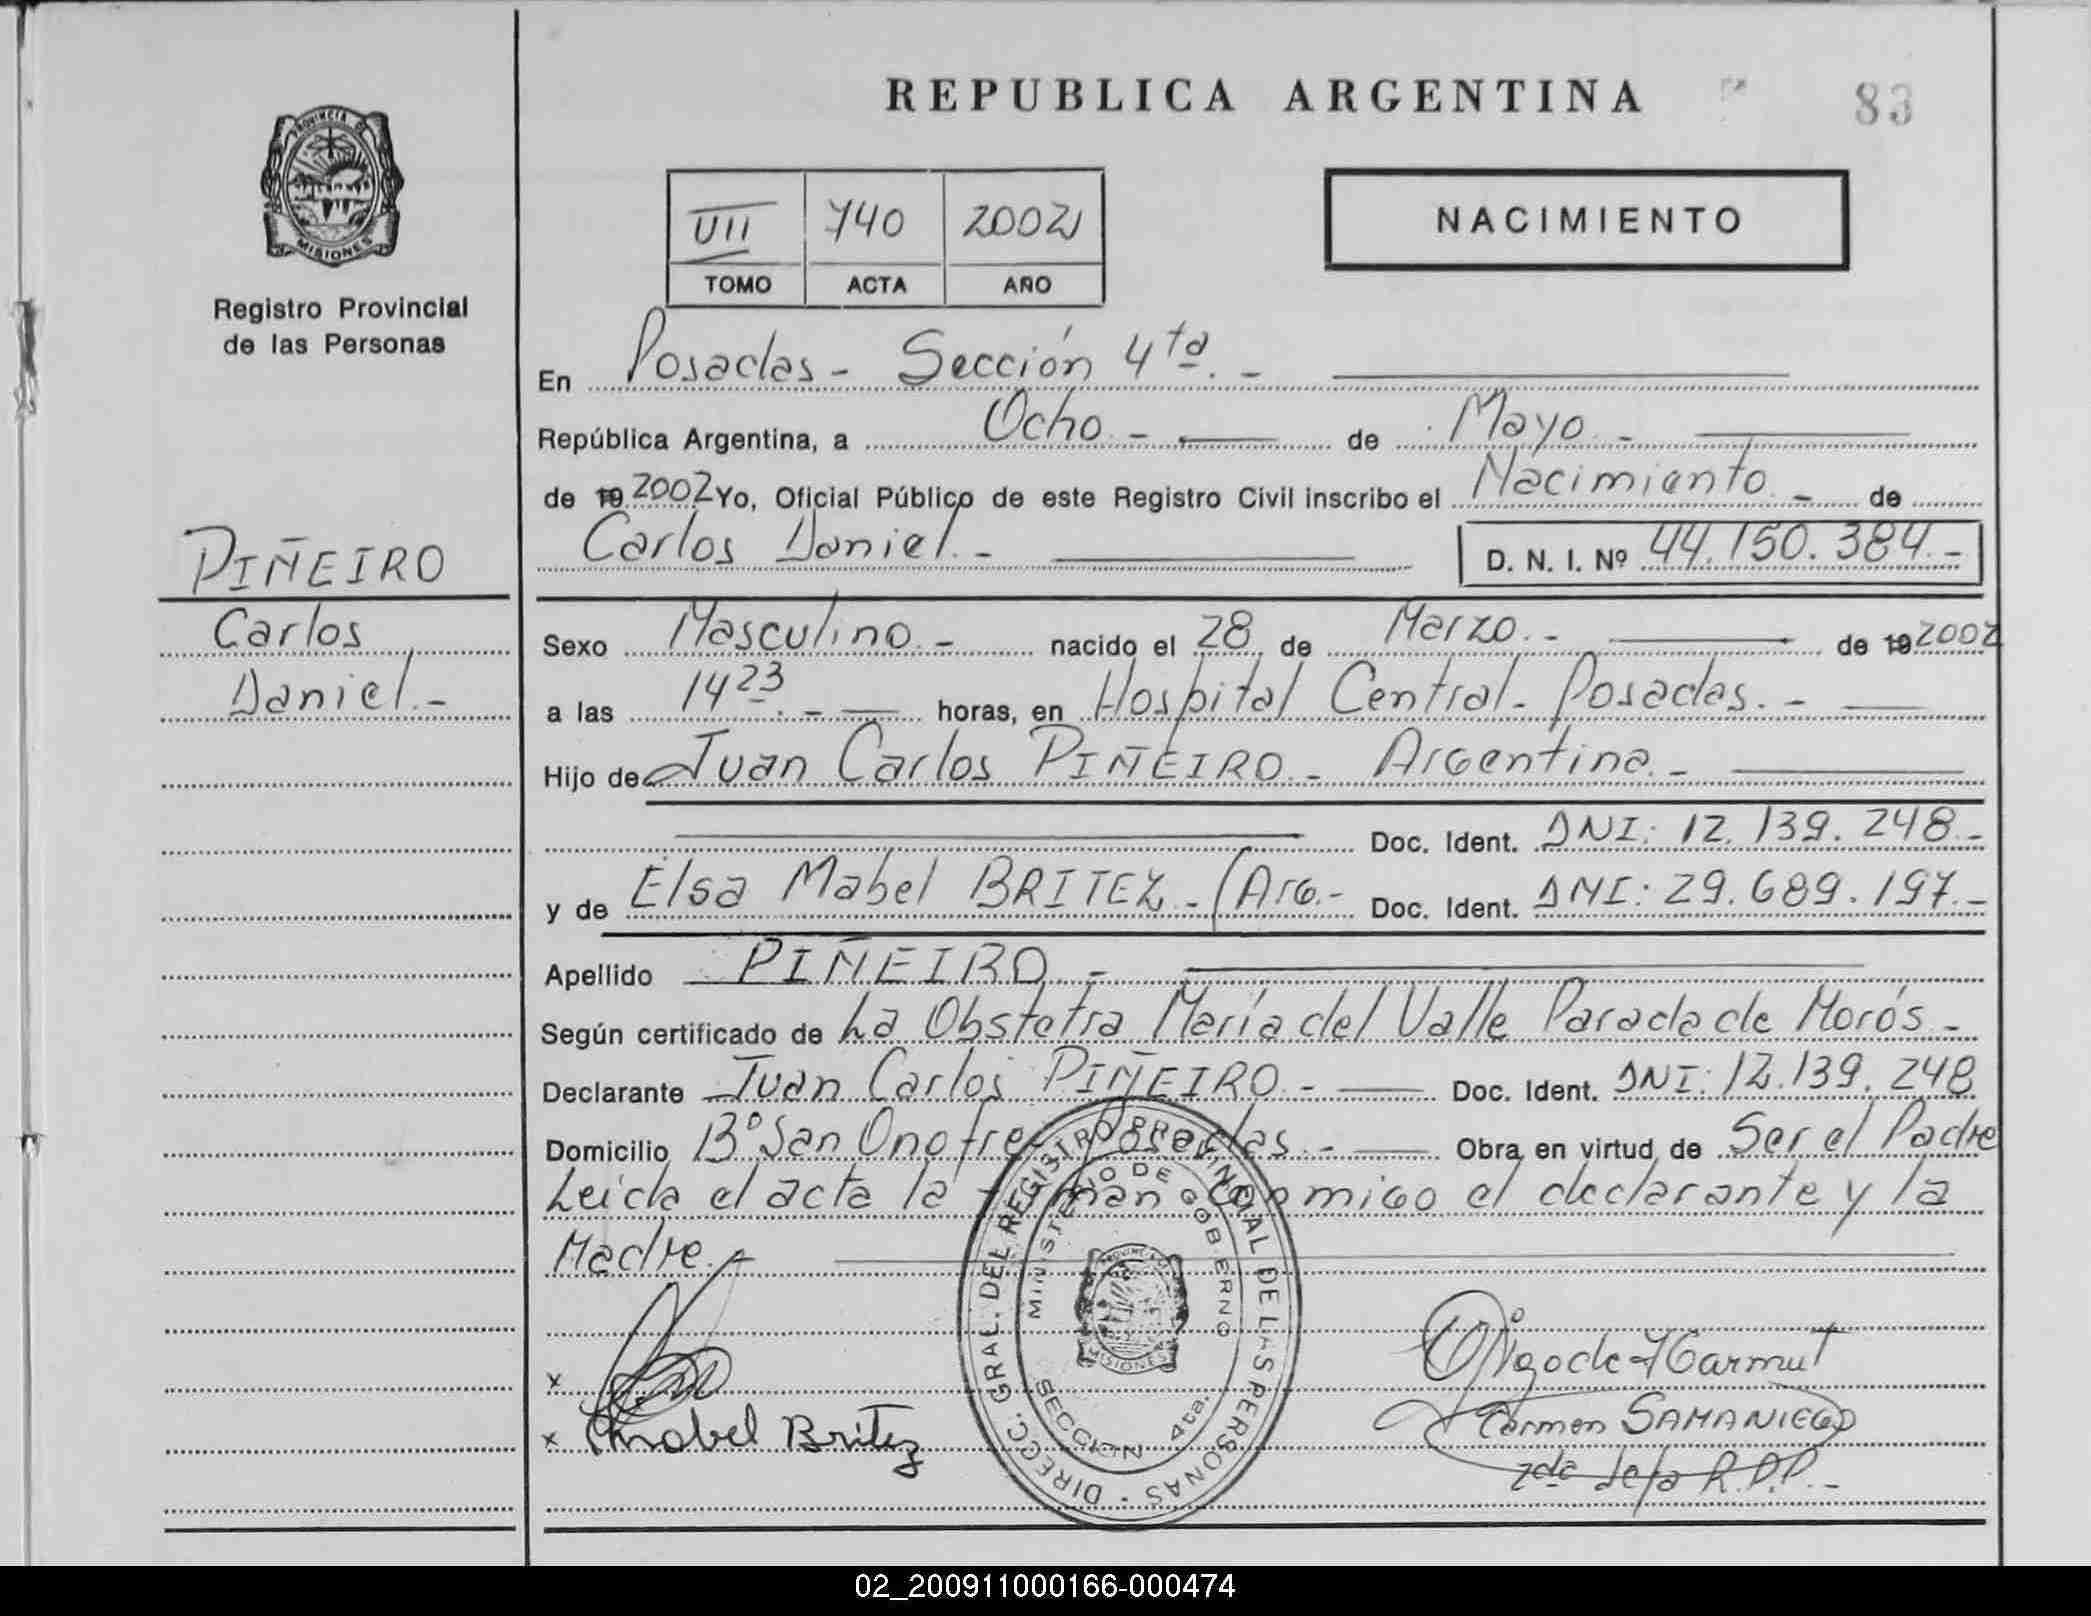 REPUBLICA ARGENTINA 83
PROVINCIA DE
MISIONES
Registro Provincial
de las Personas
VII 740 2002
TOMO ACTA AÑO
NACIMIENTO
En Posadas - Sección 4ta. -
República Argentina, a Ocho - de Mayo -
de 19 2002 Yo, Oficial Público de este Registro Civil inscribo el Nacimiento - de
Carlos Daniel. - D. N. I. Nº 44.150.384.-
PIÑEIRO
Carlos
Daniel.-
Sexo Masculino.- nacido el 28 de Marzo.- de 19 2002
a las 14 23. - horas, en Hospital Central - Posadas. -
Hijo de Juan Carlos PIÑEIRO - Argentino.-
Doc. Ident. DNI: 12.139.248.-
y de Elsa Mabel BRITEZ - (Arg.- Doc. Ident. DNI: 29.689.197.-
Apellido PIÑEIRO -
Según certificado de La Obstetra María del Valle Parada de Morós -
Declarante Juan Carlos PIÑEIRO - Doc. Ident. DNI: 12.139.248
Domicilio Bº San Onofre Posadas. - Obra en virtud de Ser el Padre
Leida el acta la firman conmigo el declarante y la
Madre.-
DIRECC. GRAL. DEL REGISTRO PROVINCIAL DE LAS PERSONAS
MINISTERIO DE GOBIERNO
PROVINCIA DE
MISIONES
SECCION 4ta.
x
x Mabel Britez
Carmen SAMANIEGO
2da Jefa R.P.P.-
02_200911000166-000474